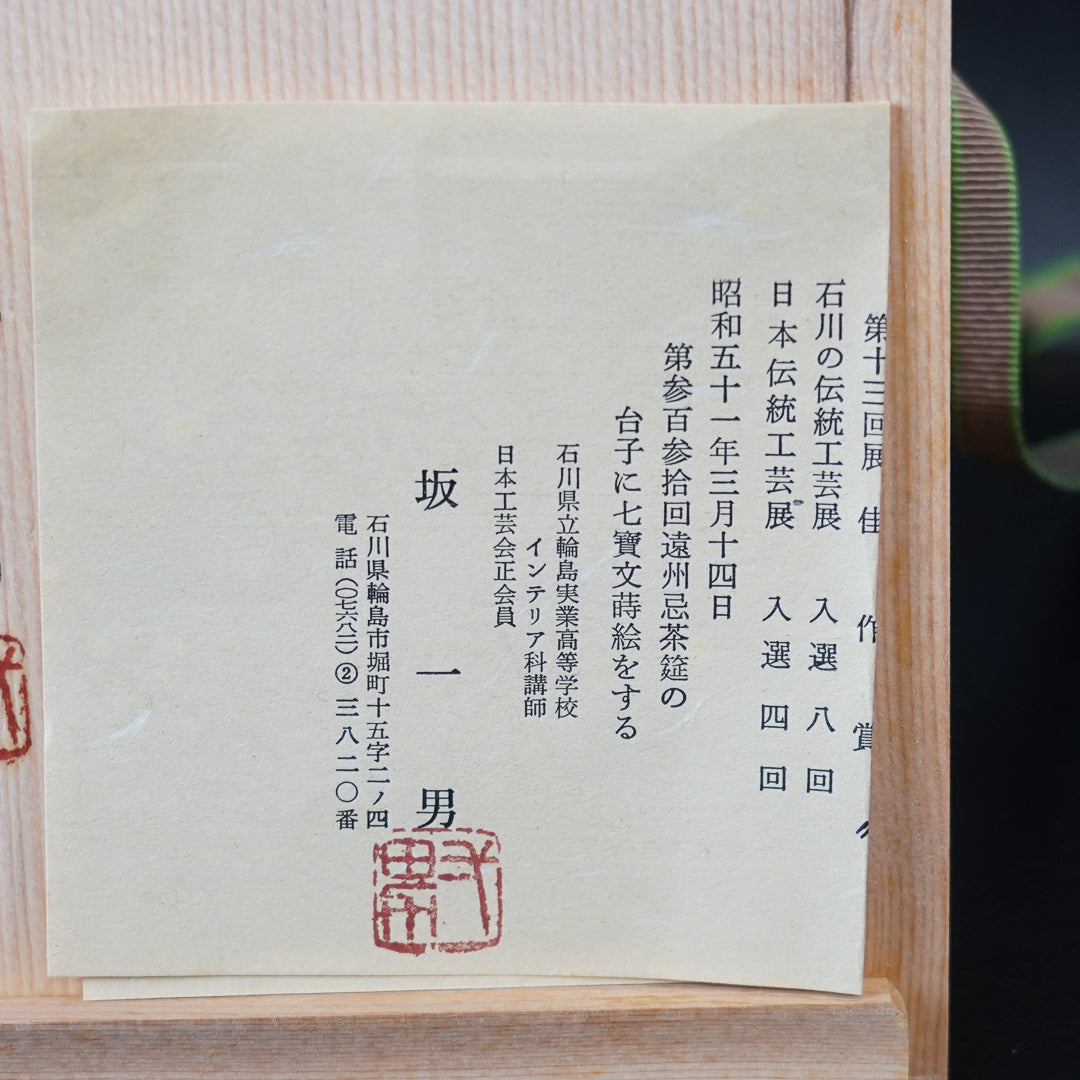 第十三回展 佳作賞
石川の伝統工芸展 入選八回
日本伝統工芸展 入選四回
昭和五十一年三月十四日
第参百参拾回遠州忌茶筵の
台子に七寶文蒔絵をする
石川県立輪島実業高等学校
インテリア科講師
日本工芸会正会員
坂一男
石川県輪島市堀町十五字二ノ四
電話(〇七六八二)②三八二〇番